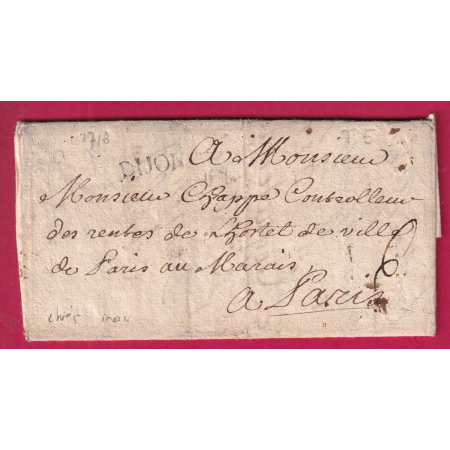 1718
DIJON
A Monsieur
Monsieur Chappe Controlleur
des rentes de Lhostel de ville
de Paris au Marais
a Paris